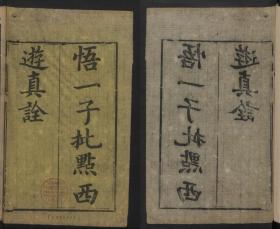 悟一子批點西
遊真詮
悟一子批點西
遊真詮